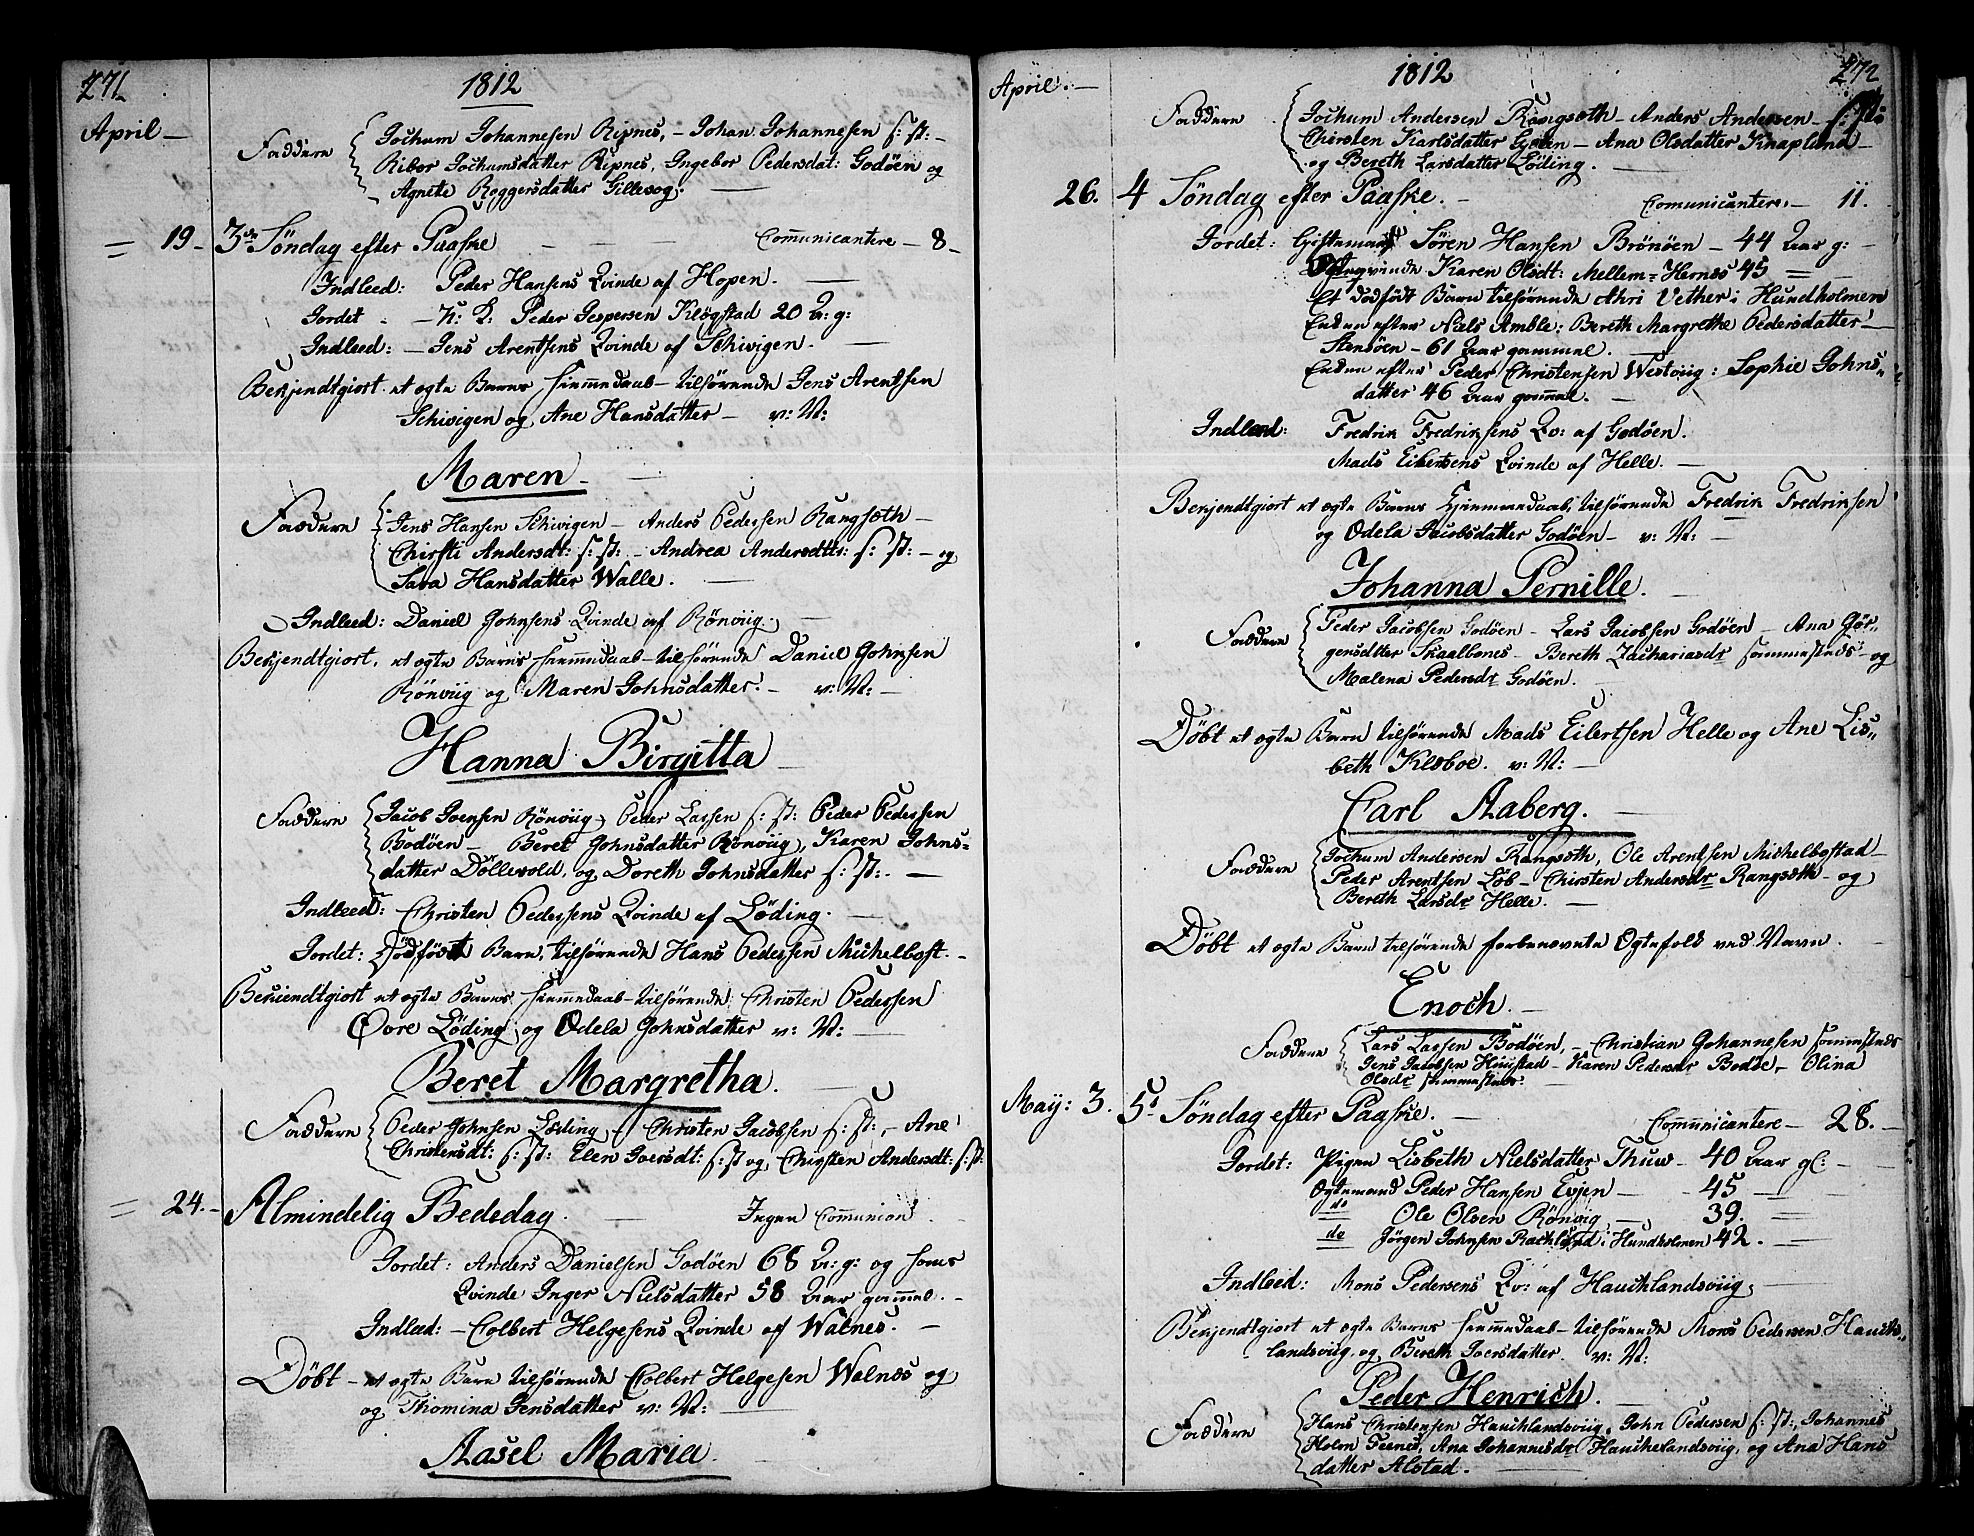 271
1812
April —
Faddere
Jochum Johannesen Ripnes, — Johan Johannesen s: st: —
Ribor Jochumsdatter Ripnes, Ingebor Pedersdat: Godöen og
Agnete Roggersdatter Gillesog. —
= 19 — 3de Söndag efter Paaske — — — Communicantere — 8 —
Indleed: Peder Hansens Qvinde af Hopen. —
Jordet — Peder Jespersen Klögstad 20 Ar: g:
Indleed: — Jens Arentsens Qvinde af Schivigen. —
Bekjendtgiort et ægte Barns hiemmedaab — tilhörende Jens Arentsen
Schivigen og Ane Hansdatter — v: N:
Maren —
Faddere
Jens Hansen Schivigen — Anders Pedersen Rangsæth —
Chirsti Andersdt: s: st: — Andrea Andersdtr: s: st: — og
Sara Hansdatter Walle. —
Indleed: Daniel Johnsens Qvinde af Rönviig. —
Bekjendtgiort, et ægte Barns hiemmedaab — tilhörende Daniel Johnsen
Rönviig og Maren Johnsdatter. — v: N: —
Hanna Birgitta —
Faddere
Jacob Joensen Rönviig, Peder Larsen s: st: Peder Pedersen
Bodöen — Beret Johnsdatter Rönviig, Karen Johns-
datter Döllevold, og Doreth Johnsdatter s: st: —
Indleed: Christen Pedersens Qvinde af Löding. —
Jordet: Dödfödt Barn, tilhörende Hans Pedersen Michelbost. —
Bekiendtgiort et ægte Barns hiemmedaab — tilhörende Christen Pedersen
Övre Löding og Odela Johnsdatter v: N: —
Beret Margretha. —
Faddere
Peder Johnsen Löding — Christen Jacobsen s: st: — Ane
Christensdt: s: st: Elen Joersdt: s: st og, Chirsten Andersdt: s: st:
= 24. — Almindelig Bededag. — Ingen Communion. —
Jordet: Anders Danielsen Godöen 68 Ar: g: og hans
Qvinde Inger Nielsdatter 58 Aar gammel. —
Indleed: — Colbert Helgesens Qvinde af Walnes. —
Döbt — et ægte Barn tilhörende Colbert Helgesen Walnes og
og Thomina Jensdatter v: N: —
Aasel Maria. —
April. —
1812
272
Faddere
Jochum Andersen Rangsæth — Anders Andersen — s: st:
Chirsten Karlsdatter — Ana Olsdatter Knaplund —
og Bereth Larsdatter Löding. —
26. 4 Söndag efter Paaske. — Comunicantere. — 11.
Jordet: Giftemand Sören Hansen Brönöen — 44 Aar g: —
Karen Olsdt: Mellem=Hernes 45 = —
Et dödfödt Barn tilhörende Ahri Vether i Hundholmen
Enken efter Niels Amble: Bereth Margrethe Pedersdatter —
Stensöen — 61 Aar gammel. —
Enken efter Peder Christensen Westviig: Sophie Johns-
datter 46 Aar gammel. —
Indleed: Fredrik Fredriksens Qv: af Godöen.
Mads Eilertsens Qvinde af Helle. —
Bekjendtgiort et ægte Barns hjemmedaab, tilhörende Fredrik Fredriksen
og Odela Jacobsdatter Godöen — v: N: —
Johanna Pernille. —
Faddere
Peder Jacobsen Godöen — Lars Jacobsen Godöen — Ana Jör-
gensdtter Skaalbones — Bereth Zachariasdr sammesteds — og
Malena Pedersdr Godöen. —
Döbt et ægte Barn tilhörende Mads Eilertsen Helle og Ane Lis-
beth Klæboe. v: N: —
Carl Aaberg. —
Faddere
Jochum Andersen Rangsæth, Ole Arentsen Michelbostad —
Peder Arentsen Löb — Chirsten Andersdr Rangsæth — og
Bereth Larsdr Helle. —
Döbt et ægte Barn tilhörende forbenevnte Egtefolk ved Navn. —
Enoch. —
Faddere
Lars Larsen Bodöen, — Christian Johannesen sammesteds
Jens Jacobsen Hunstad — Karen Pedersdr Bodöe, — Olina
Olsdr sammesteds. —
May: 3. 5te Söndag efter Paaske. — Communicantere — 28. —
Jordet: Pigen Lisbeth Nielsdatter Thuv — 40 Aar gl: —
Egtemand Peder Hansen Evjen — 45 —
do Ole Olsen Rönvig — 39. =
do Jörgen Johnsen i Hundholmen 42. =
Indleed: Mons Pedersens Qv: af Hauchlandsviig, —
Bekjendtgiort et ægte Barns hiemmedaab — tilhörende Mons Pedersen Hauch-
landsviig og Bereth Joersdatter. v: N:
Peder Henrich. —
Faddere
Hans Christensen Hauchlandsviig, John Pedersen s: st:, Johannes
Holm Teenes, Ana Johannesdr Hauchlandsviig, og Ana Hans
datter Alstad. —